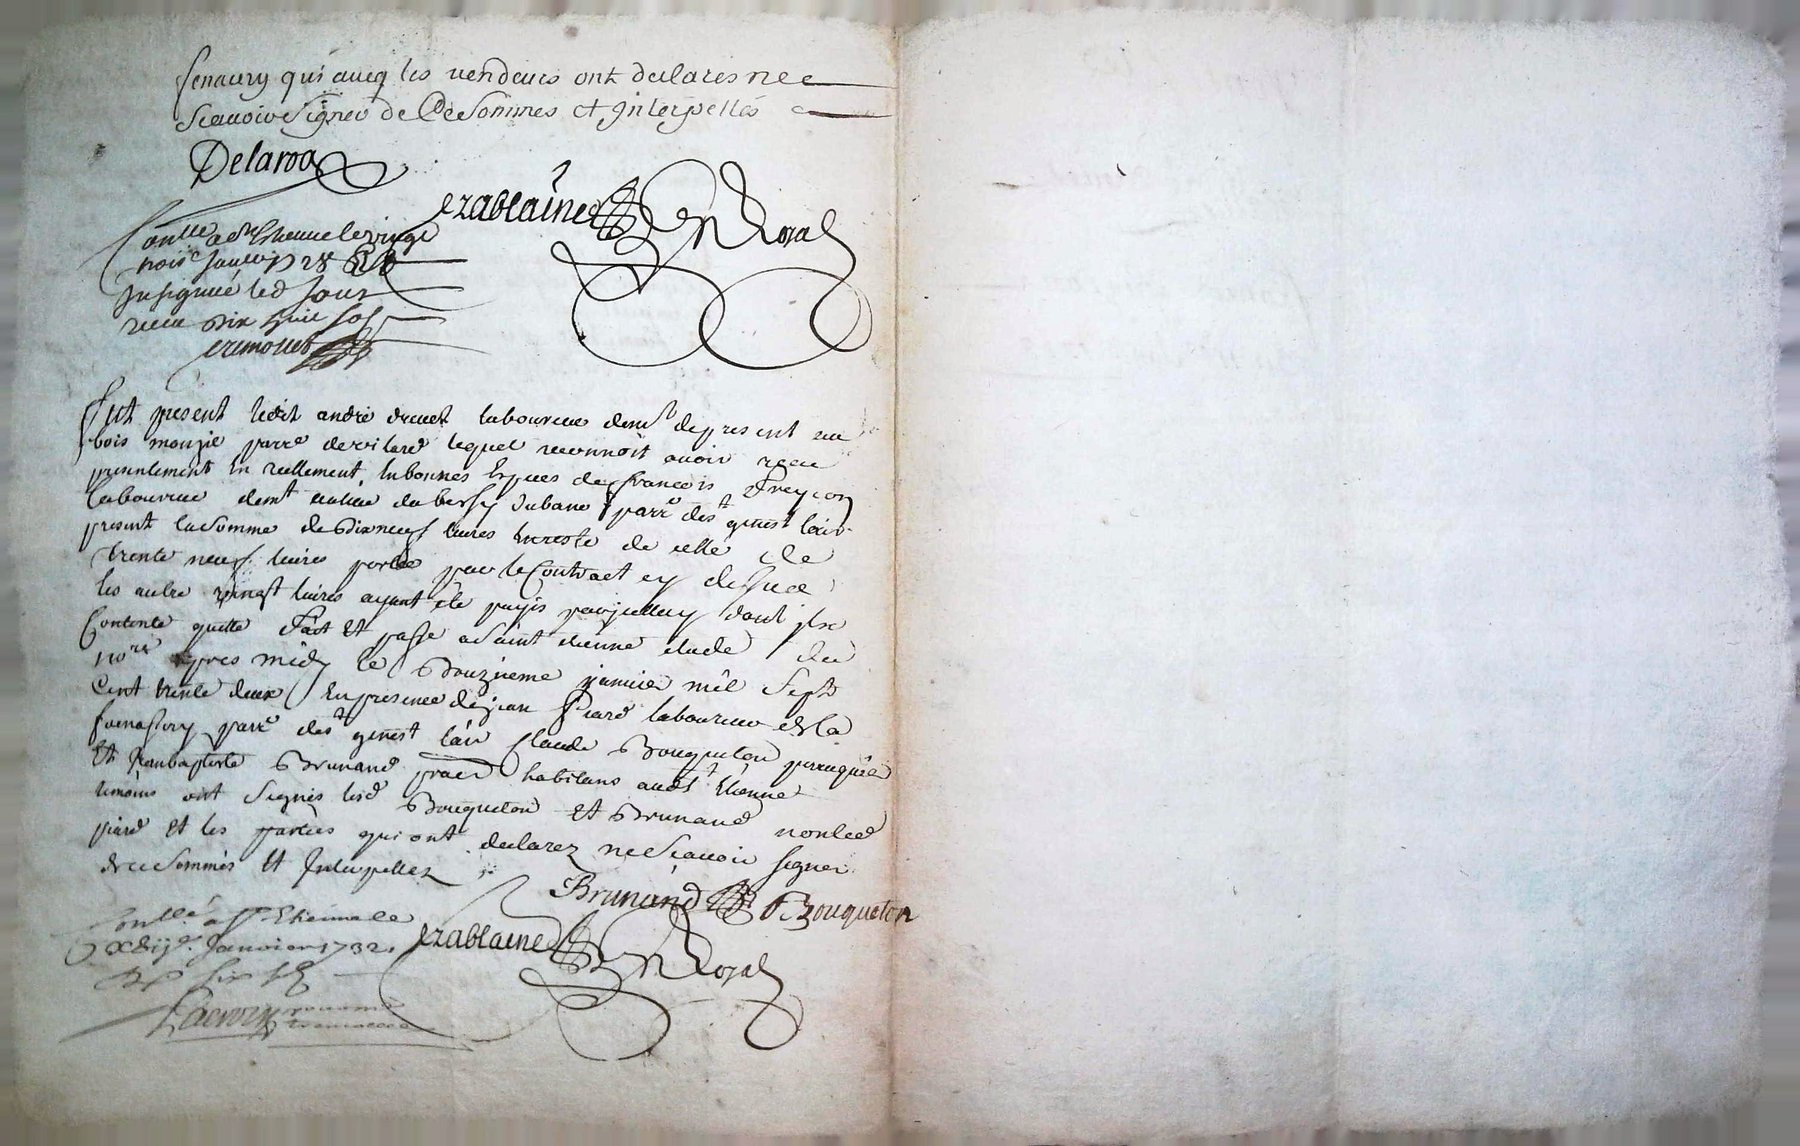 Senaury qui aucq les vendeurs ont declares ne
Scauoir Signer de Ce Sommes et Interpelles
Delaroa
ezablaine Nre Royal
Conllé a St Etienne le vingt
trois Januier 1728
Insignué led Jour
receu dix huit sols
Fut présent ledit andré druet laboureur demt de present au
bois monzil parre de vilard lequel reconnoit auoir receu
presentement En reellement, En bonnes Especes de francois Freycon
laboureur demt au lieu du parre de st genest lair
present la Somme de Dix neuf liures En reste de celle de
trente neuf liures portée par le Contract cy dessus
les autre vingt liures ayant été payés par dont il se
Contente quitte Fait Et passé a Saint etienne etude du
nore apres midy le Douzieme januier mil Sept
Cent trente deux En presence de jean Piard laboureur de la
parre de st genest lair Claude Bouqueton perruquier
Et Jean baptiste Brunand habitans aud st Etienne
temoins ont Signés lesd Bouqueton et Brunand non led
piard et les parties qui ont declarez ne Scauoir signer
de ce Sommés Et Interpellez
Brunand Bouqueton
ezablaine Nre Royal
Conllé a St Etienne le
Januier 1732
six s